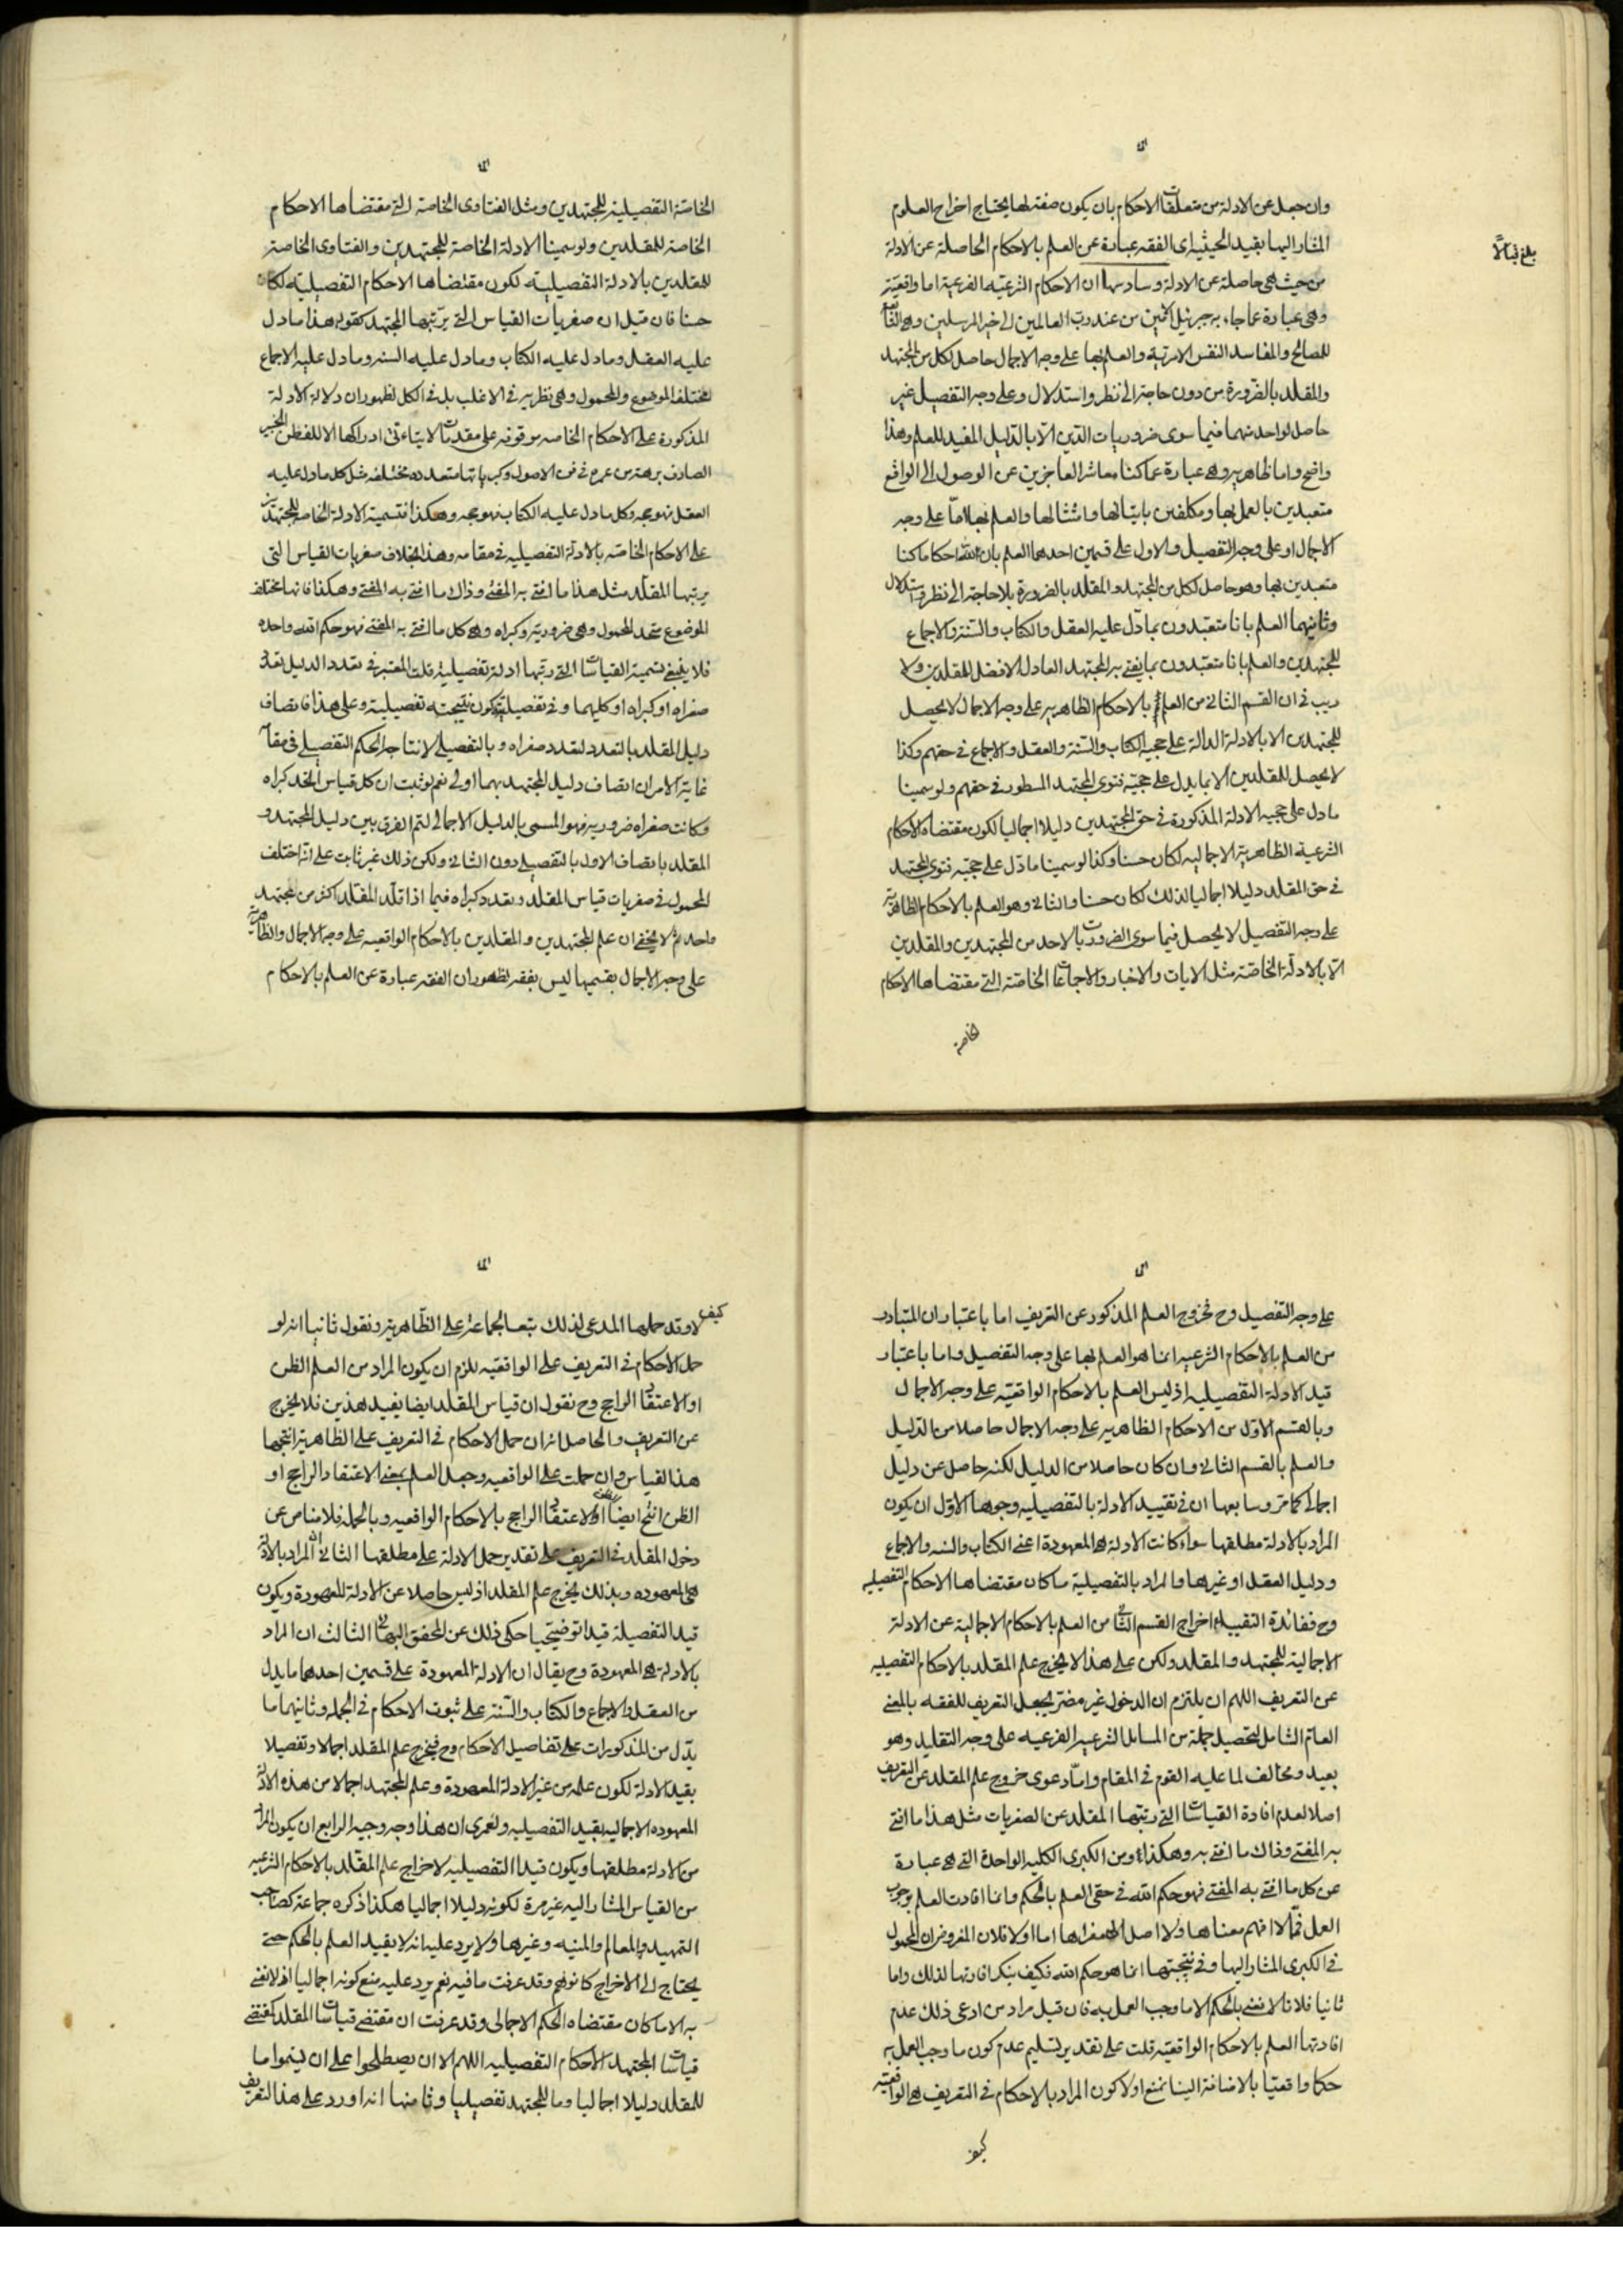 وان جعل عن الادلة من متعلقات الاحكام بان يكون صفة لها يحتاج اخراج العلوم
المشار اليها بقيد الحيثية اى الفقه عبارة عن العلم بالاحكام الحاصلة عن الادلة
من حيث هى حاصلة عن الادلة وسادسها ان الاحكام الشرعية الفرعية اما واقعية
وهى عبارة عما جاء به جبرئيل الامين من عند رب العالمين الى خير المرسلين وهى
للمصالح والمفاسد النفس الامرية والعلم بها على وجه الاجمال حاصل لكل من المجتهد
والمقلد بالضرورة من دون حاجة الى نظر واستدلال وعلى وجه التفصيل غير
حاصل لواحد منهما فيما سوى ضروريات الدين الا بالدليل المفيد للعلم وهذا
واضح واما ظاهرية وهى عبارة عما كنا معاشر العاجزين عن الوصول الى الواقع
متعبدين بالعمل بها ومكلفين باتيانها وامتثالها والعلم بها اما على وجه
الاجمال او على وجه التفصيل والاول على قسمين احدهما العلم بان لله احكاما كنا
متعبدين بها وهو حاصل لكل من المجتهد والمقلد بالضرورة بلا حاجة الى نظر واستدلال
وثانيهما العلم بانا متعبدون بما دل عليه العقل والكتاب والسنة والاجماع
للمجتهدين والعلم بانا متعبدون بما يفتى به المجتهد العادل الافضل للمقلدين ولا
ريب فى ان القسم الثانى من العلم بالاحكام الظاهرية على وجه الاجمال لا يحصل
للمجتهدين الا بالادلة الدالة على حجية الكتاب والسنة والعقل والاجماع فى حقهم وكذا
لا يحصل للمقلدين الا بما يدل على حجية فتوى المجتهد المسطور فى حقهم ولو سمينا
ما دل على حجية الادلة المذكورة فى حق المجتهدين دليلا اجماليا لكون مقتضاه الاحكام
الشرعية الظاهرية الاجمالية لكان حسنا وكذا لو سمينا ما دل على حجية فتوى المجتهد
فى حق المقلد دليلا اجماليا لذلك لكان حسنا والثانى وهو العلم بالاحكام الظاهرية
على وجه التفصيل لا يحصل فيما سوى الضروريات لاحد من المجتهدين والمقلدين
الا بالادلة الخاصة مثل الايات والاخبار والاجماعات الخاصة التى مقتضاها الاحكام
الخاصة
الخاصة التفصيلية للمجتهدين ومثل الفتاوى الخاصة التى مقتضاها الاحكام
الخاصة للمقلدين ولو سمينا الادلة الخاصة للمجتهدين والفتاوى الخاصة
للمقلدين بالادلة التفصيلية لكون مقتضاها الاحكام التفصيلية لكان
حسنا فان قيل ان صغريات القياس التى يرتبها المجتهد كقوله هذا ما دل
عليه العقل وما دل عليه الكتاب وما دل عليه السنة وما دل عليه الاجماع
مختلف الموضوع والمحمول وهى نظرية فى الاغلب بل فى الكل لظهور ان دلالة الادلة
المذكورة على الاحكام الخاصه موقوفه على مقدمات لا يتاتى ادراكها الا للفطن الخبير
الصارف برهة من عمره فى فن الاصول وكبرياتها متعدده مختلفه مثل كل ما دل عليه
العقل فهو حجه وكل ما دل عليه الكتاب فهو حجه وهكذا فتسمية الادلة الخاصه للمجتهدين
على الاحكام الخاصه بالادلة التفصيليه فى مقامه وهذا بخلاف صغريات القياس التى
يرتبها المقلد مثل هذا ما افتى به المفتى وذاك ما افتى به المفتى وهكذا فانها مختلف
الموضوع متحد المحمول وهى ضرورية وكبراه وهى كل ما افتى به المفتى فهو حكم الله واحده
فلا ينبغى تسمية القياسات التى رتبها ادلة تفصيلية قلت المعتبر فى تعدد الدليل تعدد
صغراه او كبراه او كليهما وفى تفصيليته كون نتيجته تفصيلية وعلى هذا فاتصاف
دليل المقلد بالتعدد لتعدد صغراه وبالتفصيلى لانتاجه الحكم التفصيلى فى مقامه
غاية الامر ان اتصاف دليل المجتهد بهما اولى نعم لو ثبت ان كل قياس اتحد كبراه
وكانت صغراه ضرورية فهو المسمى بالدليل الاجمالى لتم الفرق بين دليل المجتهد و
المقلد باتصاف الاول بالتفصيلى دون الثانى ولكن ذلك غير ثابت على انه اختلف
المحمول فى صغريات قياس المقلد وتعدد كبراه فيما اذا قلد المقلد اكثر من مجتهد
واحد ثم لا يخفى ان علم المجتهدين والمقلدين بالاحكام الواقعيه على وجه الاجمال والظاهرية
على وجه الاجمال بقسميها ليس بفقه لظهور ان الفقه عبارة عن العلم بالاحكام
على وجه التفصيل وح فخروج العلم المذكور عن التعريف اما باعتبار ان المتبادر
من العلم بالاحكام الشرعيه انما هو العلم بها على وجه التفصيل واما باعتبار
قيد الادلة التفصيليه اذ ليس العلم بالاحكام الواقعية على وجه الاجمال
وبالقسم الاول من الاحكام الظاهرية على وجه الاجمال حاصلا من الدليل
والعلم بالقسم الثانى وان كان حاصلا من الدليل لكنه حاصل عن دليل
اجمالى كما مر وسابعها ان فى تقييد الادلة بالتفصيليه وجوها الاول ان يكون
المراد بالادلة مطلقها سواء كانت الادلة هى المعهودة اعنى الكتاب والسنه والاجماع
ودليل العقل او غيرها والمراد بالتفصيلية ما كان مقتضاها الاحكام التفصيليه
وح ففائدة التقييد اخراج القسم الثانى من العلم بالاحكام الاجمالية عن الادلة
الاجمالية للمجتهد والمقلد ولكن على هذا لا يخرج علم المقلد بالاحكام التفصيليه
عن التعريف اللهم ان يلتزم ان الدخول غير مضر بجعل التعريف للفقه بالمعنى
العام الشامل لتحصيل جملة من المسائل الشرعيه الفرعيه على وجه التقليد وهو
بعيد ومخالف لما عليه القوم فى المقام واما دعوى خروج علم المقلد عن التعريف
اصلا لعدم افادة القياسات التى رتبها المقلد عن الصغريات مثل هذا ما افتى
به المفتى وذاك ما افتى به وهكذا ومن الكبرى الكليه الواحدة التى هى عبارة
عن كل ما افتى به المفتى فهو حكم الله فى حقى العلم بالحكم وانما افادت العلم بوجوب
العمل فمما لا افهم معناها ولا اصل لها اما اولا فلان المفروض ان المحمول
فى الكبرى المشار اليها وفى نتيجتها انما هو حكم الله فكيف ينكر افادتها لذلك واما
ثانيا فلانا لا نعنى بالحكم الا ما وجب العمل به فان قيل مراد من ادعى ذلك عدم
افادتها العلم بالاحكام الواقعية قلت على تقدير تسليم عدم كون ما وجب العمل به
حكما واقعيا بالاضافة الينا نمنع اولا كون المراد بالاحكام فى التعريف هى الواقعية
كيف
كيف لا وقد حملها المدعى لذلك تبعا لجماعة على الظاهرية ونقول ثانيا انه لو
حمل الاحكام فى التعريف على الواقعيه للزم ان يكون المراد من العلم الظن
او الاعتقاد الراجح وح نقول ان قياس المقلد ايضا يفيد هذين فلا يخرج
عن التعريف والحاصل انه ان حمل الاحكام فى التعريف على الظاهرية انتجها
هذا القياس وان حملت على الواقعيه وجعل العلم بمعنى الاعتقاد الراجح او
الظن انتج ايضا الاعتقاد الراجح بالاحكام الواقعيه وبالجملة فلا مناص عن
دخول المقلد فى التعريف على تقدير حمل الادلة على مطلقها الثانى ان المراد بالادلة
هى المعهوده وبذلك يخرج علم المقلد اذ ليس حاصلا عن الادلة المعهودة ويكون
قيد التفصيلة قيدا توضيحيا حكى ذلك عن المحقق البهائى الثالث ان المراد
بالادلة هى المعهودة وح يقال ان الادلة المعهودة على قسمين احدهما ما يدل
من العقل والاجماع والكتاب والسنة على ثبوت الاحكام فى الجملة وثانيهما ما
يدل من المذكورات على تفاصيل الاحكام وح فيخرج علم المقلد اجمالا وتفصيلا
بقيد الادلة لكون علمه من غير الادلة المعهودة وعلم المجتهد اجمالا من هذه الادلة
المعهوده الاجماليه بقيد التفصيليه ولعمرى ان هذا وجه وجيه الرابع ان يكون المراد
من الادلة مطلقها ويكون قيد التفصيليه لاخراج علم المقلد بالاحكام الشرعيه
من القياس المشار اليه غير مرة لكونه دليلا اجماليا هكذا ذكره جماعة كصاحب
التمهيد والمعالم والمنيه وغيرها ولا يرد عليه انه لا يفيد العلم بالحكم حتى
يحتاج الى الاخراج كما توهم وقد عرفت ما فيه نعم يرد عليه منع كونه اجماليا اذ لا نعنى
به الا ما كان مقتضاه الحكم الاجمالى وقد عرفت ان مقتضى قياسات المقلد كمقتضى
قياسات المجتهد الاحكام التفصيليه اللهم الا ان يصطلحوا على ان يسموا ما
للمقلد دليلا اجماليا وما للمجتهد تفصيليا وثامنها انه اورد على هذا التعريف